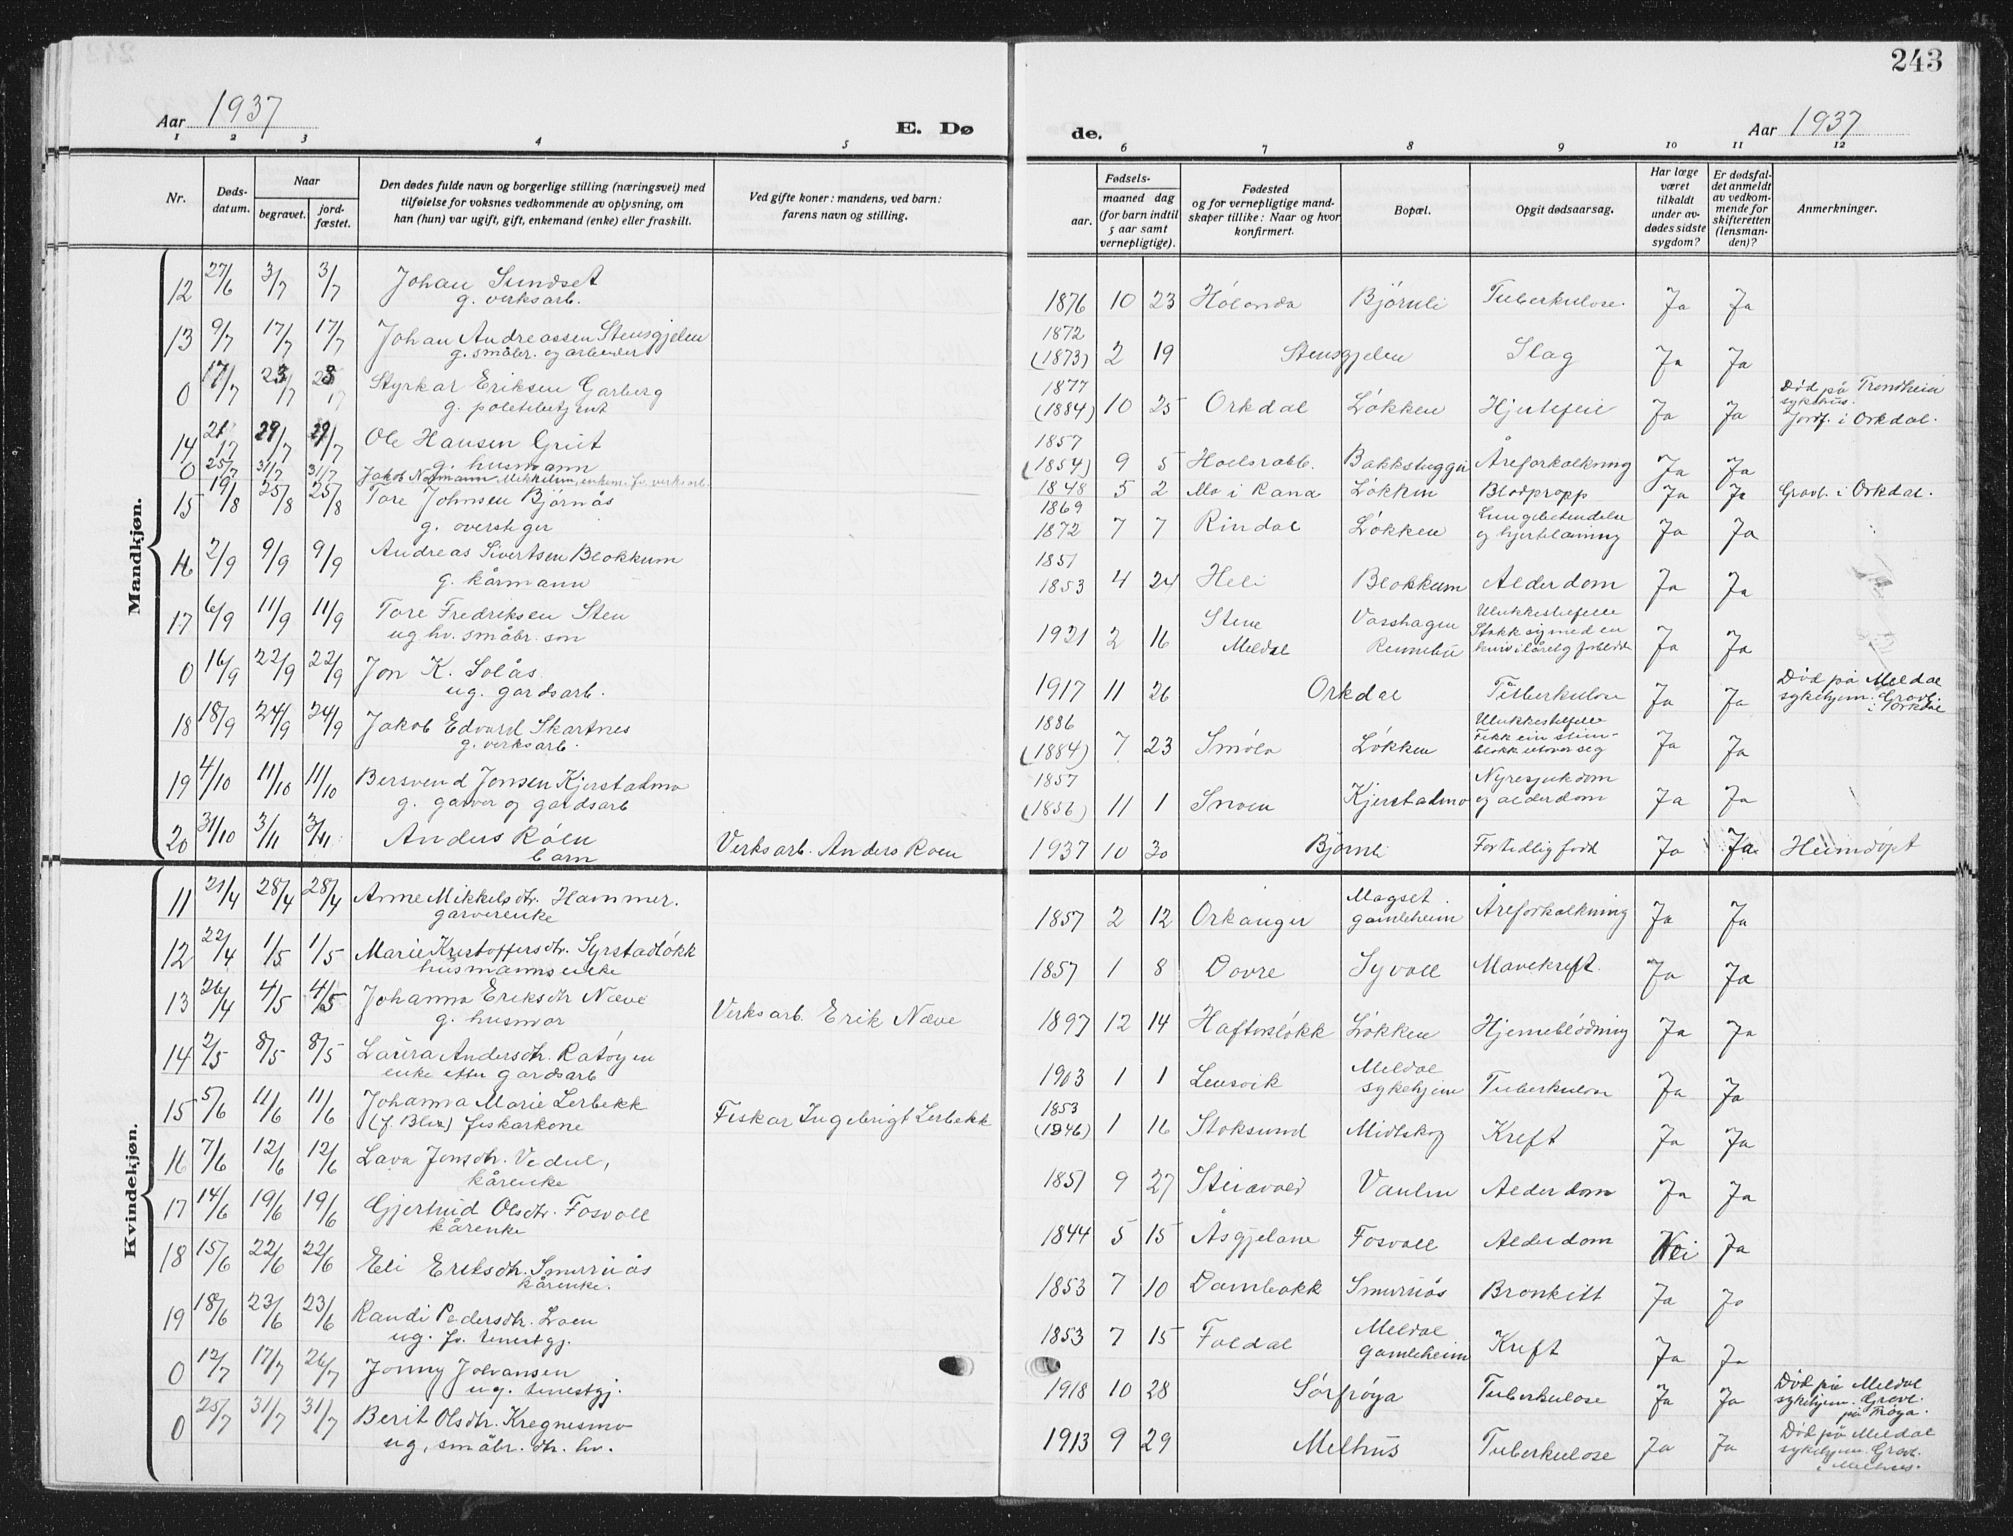 243
Aar 1937
E. Dø
de.
Aar 1937
1 2 3 4 5 6 7 8 9 10 11 12
Nr.
Døds-
datum.
Naar
begravet.
jord-
fæstet.
Den dødes fulde navn og borgerlige stilling (næringsvei) med
tilføielse for voksnes vedkommende av oplysning, om
han (hun) var ugift, gift, enkemand (enke) eller fraskilt.
Ved gifte koner: mandens, ved barn:
farens navn og stilling.
Fødsels-
aar.
maaned dag
(for barn indtil
5 aar samt
vernepligtige).
Fødested
og for vernepligtige mand-
skaper tillike: Naar og hvor
konfirmert.
Bopæl.
Opgit dødsaarsag.
Har læge
været
tilkaldt
under av-
dødes sidste
sygdom?
Er dødsfal-
det anmeldt
av vedkom-
mende for
skifteretten
(lensman-
den)?
Anmerkninger.
Mandkjøn.
12 27/6 3/7 3/7 Johan Sundset
g. verksarb.
1876 10 23 Hølonda Bjørnli Tuberkulose. Ja Ja
13 9/7 17/7 17/7 Johan Andreassen Stensgjelen
g. småbr. og arbeider
1872
(1873) 2 19 Stensgjelen Slag Ja Ja
0 17/7 23/7 23/7 Styrkar Eriksen Garberg
g. politibetjent
1877
(1884) 10 25 Orkdal Løkken Hjertefeil Ja Ja
Død på Trondheim
sykehus.
Jordf. i Orkdal.
14 21/7 29/7 29/7 Ole Hansen Griit
g. husmann
1857
(1854) 9 5 Hoelsrabb. Bakkstuggu Åreforkalkning Ja Ja
0 25/7 31/7 31/7 Jakob Normann Mikkelsen, enkem. fv. verksarb.
1848 5 2 Mo i Rana Løkken Blodpropp Ja Ja Gravl. i Orkdal.
15 19/8 25/8 25/8 Tore Johnsen Bjørnås
g. overstiger
1869
1872 7 7 Rindal Løkken Lungebetendelse
og hjertelamning Ja Ja
16 2/9 9/9 9/9 Andreas Sivertsen Blokkum
g. kårmann
1851
1853 4 24 Heli Blokkum Alderdom Ja Ja
17 6/9 11/9 11/9 Tore Fredriksen Sten
ug hv. småbr. son
1921 2 16 Stene
Meldal
Vasshagen
Rennebu
Ulukkestilfelle
Stakk sig med en
kniv i låret Ja Ja
0 16/9 22/9 22/9 Jon K. Solås.
ug. gardsarb.
1917 11 26 Orkdal Tuberkulose Ja Ja
Død på Meldal
sykehjem. Gravl.
i Orkdal
18 18/9 24/9 24/9 Jakob Edvard Skartnes
g. verksarb.
1886
(1884) 7 23 Smøla Løkken
Ulukkestilfelle
Fekk ein stein-
blokk utover seg Ja Ja
19 4/10 11/10 11/10 Bersvend Jonsen Kjerstadmo
g. garver og gardsarb
1857
(1856) 11 1 Snoen Kjerstadmo Nyresjukdom
og alderdom Ja Ja
20 31/10 3/11 3/11 Anders Røen
barn
Verksarb. Anders Roen
1937 10 30 Bjørnli Fortidlig født Ja Ja Heimdøpt
Kvindekjøn.
11 21/4 28/4 28/4 Anne Mikkelsdtr. Hammer.
garverenke
1857 2 12 Orkanger Magset.
gamleheim Åreforkalkning Ja Ja
12 22/4 1/5 1/5 Marie Kristoffersdtr. Syrstadløkk
husmannsenke
1857 1 8 Dovre Syvoll Mavekreft. Ja Ja
13 26/4 4/5 4/5 Johanna Eriksdtr Næve
g. husmor
Verksarb. Erik Næve
1897 12 14 Haftorsløkk Løkken Hjerneblødning Ja Ja
14 2/5 8/5 8/5 Laura Andersdtr. Ratøyen
enke etter gardsarb
1903 1 1 Lensvik Meldal
sykehjem Tuberkulose Ja Ja
15 5/6 11/6 11/6 Johanna Marie Lerbekk
(f. Blix) fiskarkone
Fiskar Ingebrigt Lerbekk
1853
(1846) 1 16 Stoksund Midtskog Kreft Ja Ja
16 7/6 12/6 12/6 Lava Jonsdtr. Vedul,
kårenke
1851 9 27 Steiavold Vaulen Alderdom Ja Ja
17 14/6 19/6 19/6 Gjertrud Olsdtr. Fosvoll
kårenke
1844 5 15 Åsgjelane Fosvoll Alderdom Nei Ja
18 15/6 22/6 22/6 Eli Eriksdtr. Smurnås
kårenke.
1853 7 10 Dambakk Smurnås Bronkitt Ja Ja
19 18/6 23/6 23/6 Randi Pedersdtr. Loen
ug. fv. tenestgj.
1853 7 15 Foldal Meldal
gamleheim Kreft Ja Ja
0 12/7 17/7 26/7 Jonny Johansen
ug. tenestgj.
1918 10 28 Sørfrøya Tuberkulose Ja Ja
Død på Meldal
sykehjem. Gravl.
på Frøya.
0 25/7 31/7 31/7 Berit Olsdtr. Kregnesmo
ug, småbr. dtr. hv.
1913 9 29 Melhus Tuberkulose Ja Ja
Død på Meldal
sykehjem. Gravl.
i Melhus.